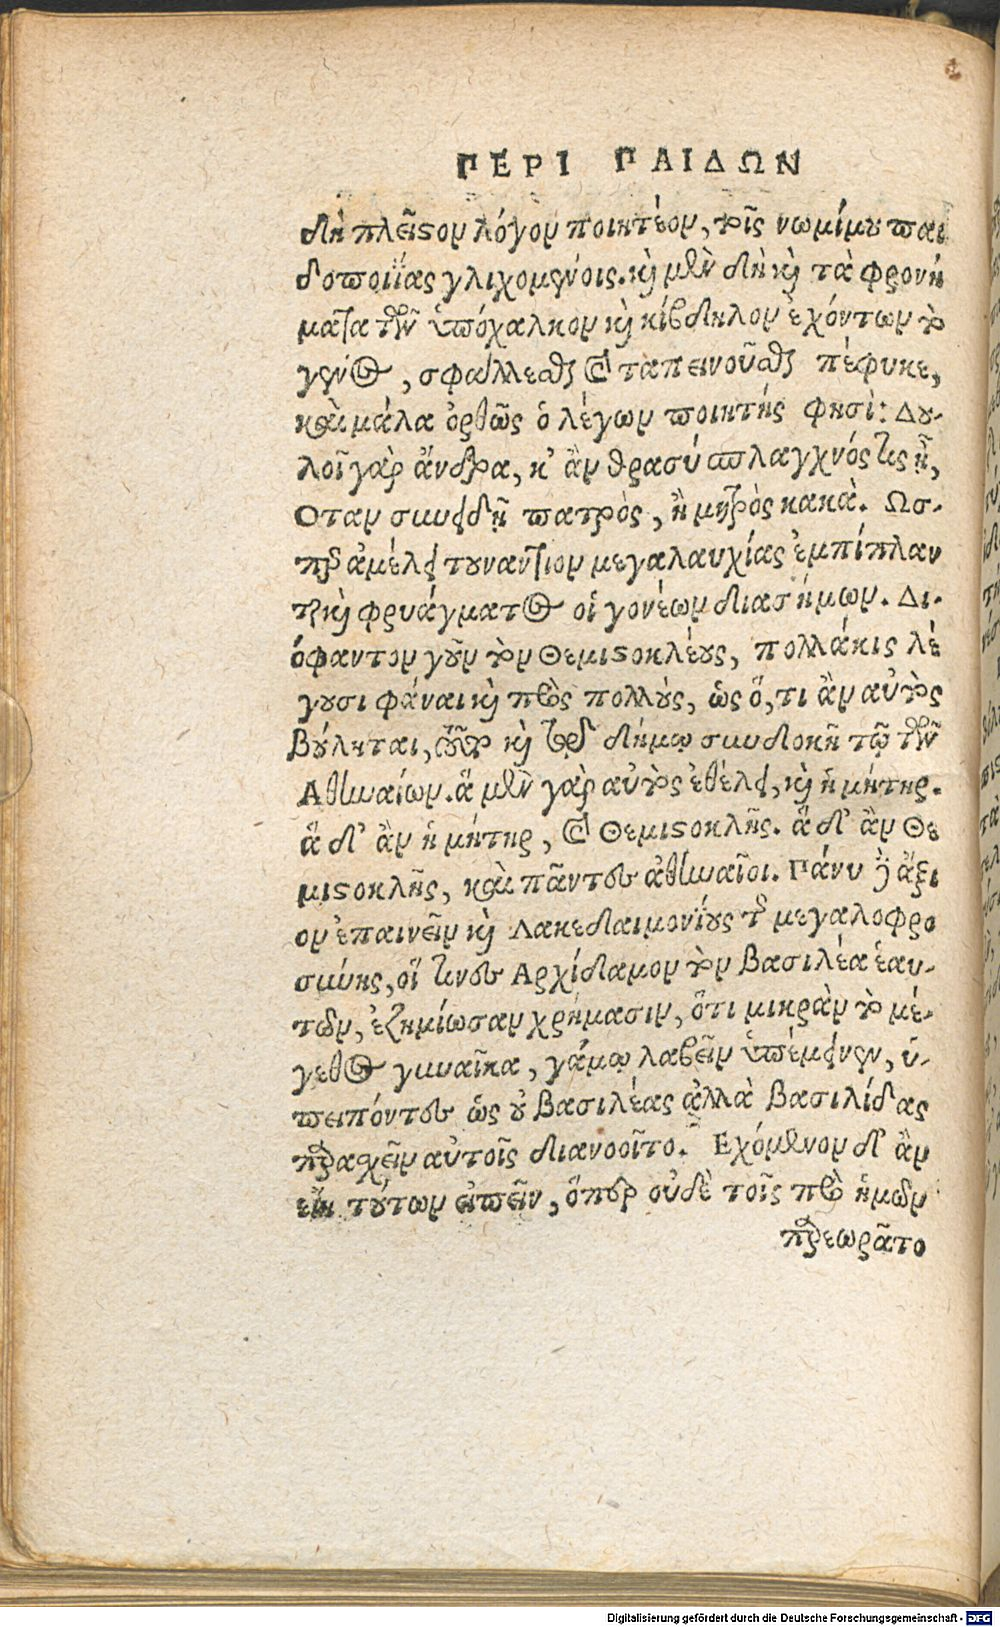 ΠΕΡΙ ΠΑΙΔΩΝ
δὴ πλεῖστον λόγον ποιητέον, τοῖς νωμίμου παι
δοποιΐας γλιχομένοις. καὶ μὲν δὴ καὶ τὰ φρονή
ματα τῶν ὑπόχαλκον καὶ κίβδηλον ἐχόντων τὸ
γένος, σφάλλεσθαι καὶ ταπεινοῦσθαι πέφυκε,
καὶ μάλα ὀρθῶς ὁ λέγων ποιητής φησὶ: Δου-
λοῖ γὰρ ἄνδρα, κ' ἂν θρασύσπλαγχνός τις ᾖ,
Οταν συνειδῇ πατρὸς, ἢ μητρὸς κακὰ. Ωσ-
περ ἀμέλει τουναντίον μεγαλαυχίας ἐμπίπλαν
ται καὶ φρυάγματος οἱ γονέων διασήμων. Δι-
όφαντον γοῦν τὸν Θεμιστοκλέους, πολλάκις λέ
γουσι φάναι καὶ πρὸς πολλοὺς, ὡς ὅ, τι ἂν αὐτὸς
βούληται, τοῦτο καὶ τῷ δήμῳ συνδοκῇ τῷ τῶν
Αθηναίων. ἃ μὲν γὰρ αὐτὸς ἐθέλει, καὶ ἡ μήτηρ.
ἃ δ' ἂν ἡ μήτηρ, καὶ Θεμιστοκλῆς. ἃ δ' ἂν Θε
μιστοκλῆς, καὶ πάντες ἀθηναῖοι. Πάνυ δὲ ἄξι
ον ἐπαινεῖν καὶ Λακεδαιμονίους τῆς μεγαλοφρο
σύνης, οἵ τινες Αρχίδαμον τὸν βασιλέα ἑαυ-
τῶν, ἐζημίωσαν χρήμασιν, ὅτι μικρὰν τὸ μέ-
γεθος γυναῖκα, γάμῳ λαβεῖν ὑπέμεινεν, ὑ-
πειπόντες ὡς οὐ βασιλέας ἀλλὰ βασιλίδας
παρασχεῖν αὐτοῖς διανοοῖτο. Εχόμενον δ' ἂν
εἴη τούτων εἰπεῖν, ὅπερ οὐδὲ τοῖς πρὸ ἡμῶν
παρεωρᾶτο
Digitalisierung gefördert durch die Deutsche Forschungsgemeinschaft - DFG